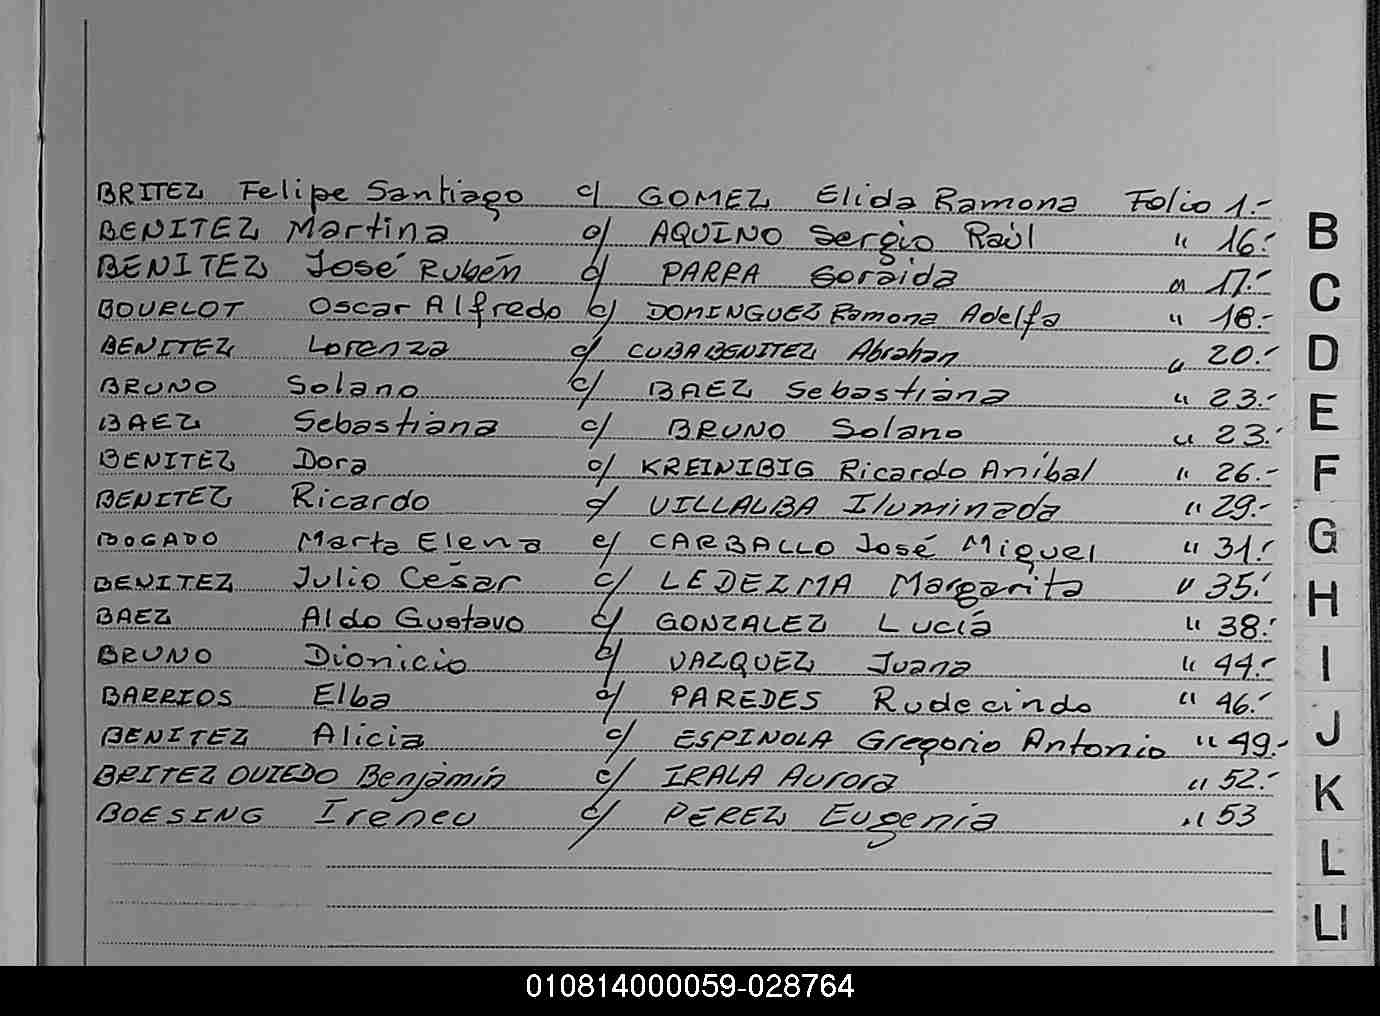 BRITEZ Felipe Santiago c/ GOMEZ Elida Ramona Folio 1.-
BENITEZ Martina c/ AQUINO Sergio Raúl " 16.-
BENITEZ José Rubén c/ PARRA Soraida " 17.-
BOURLOT Oscar Alfredo c/ DOMINGUEZ Ramona Adelfa " 18.-
BENITEZ Lorenza c/ CUBA BENITEZ Abrahan " 20.-
BRUNO Solano c/ BAEZ Sebastiana " 23.-
BAEZ Sebastiana c/ BRUNO Solano " 23.-
BENITEZ Dora c/ KREINIBIG Ricardo Aníbal " 26.-
BENITEZ Ricardo c/ VILLALBA Iluminada " 29.-
BOGADO Marta Elena c/ CARBALLO José Miguel " 31.-
BENITEZ Julio César c/ LEDEZMA Margarita " 35.-
BAEZ Aldo Gustavo c/ GONZALEZ Lucía " 38.-
BRUNO Dionicio c/ VAZQUEZ Juana " 44.-
BARRIOS Elba c/ PAREDES Rudecindo " 46.-
BENITEZ Alicia c/ ESPINOLA Gregorio Antonio " 49.-
BRITEZ OVIEDO Benjamín c/ IRALA Aurora " 52.-
BOESING Ireneu c/ PEREZ Eugenia " 53
B
C
D
E
F
G
H
I
J
K
L
Ll
010814000059-028764